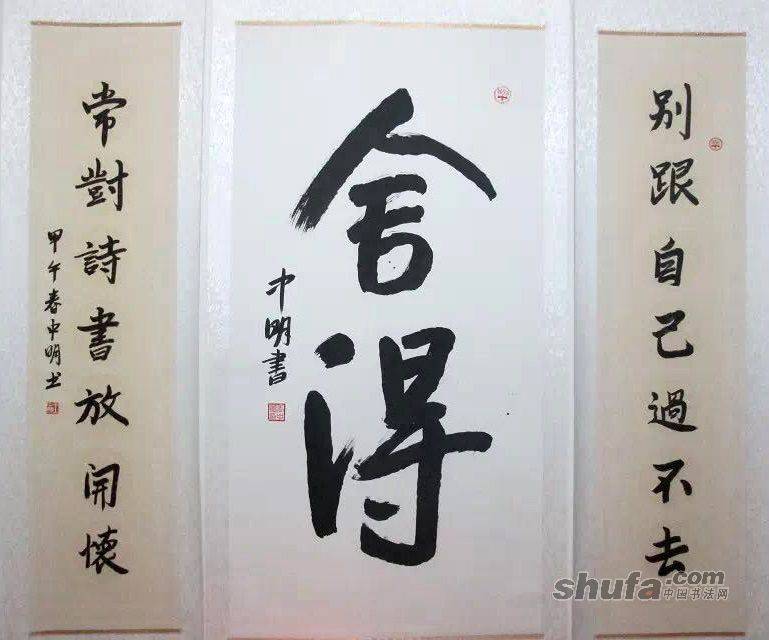 别跟自己過不去
舍得
中明書
常對詩書放開懷
甲午春中明书
shufa.com
中国书法网